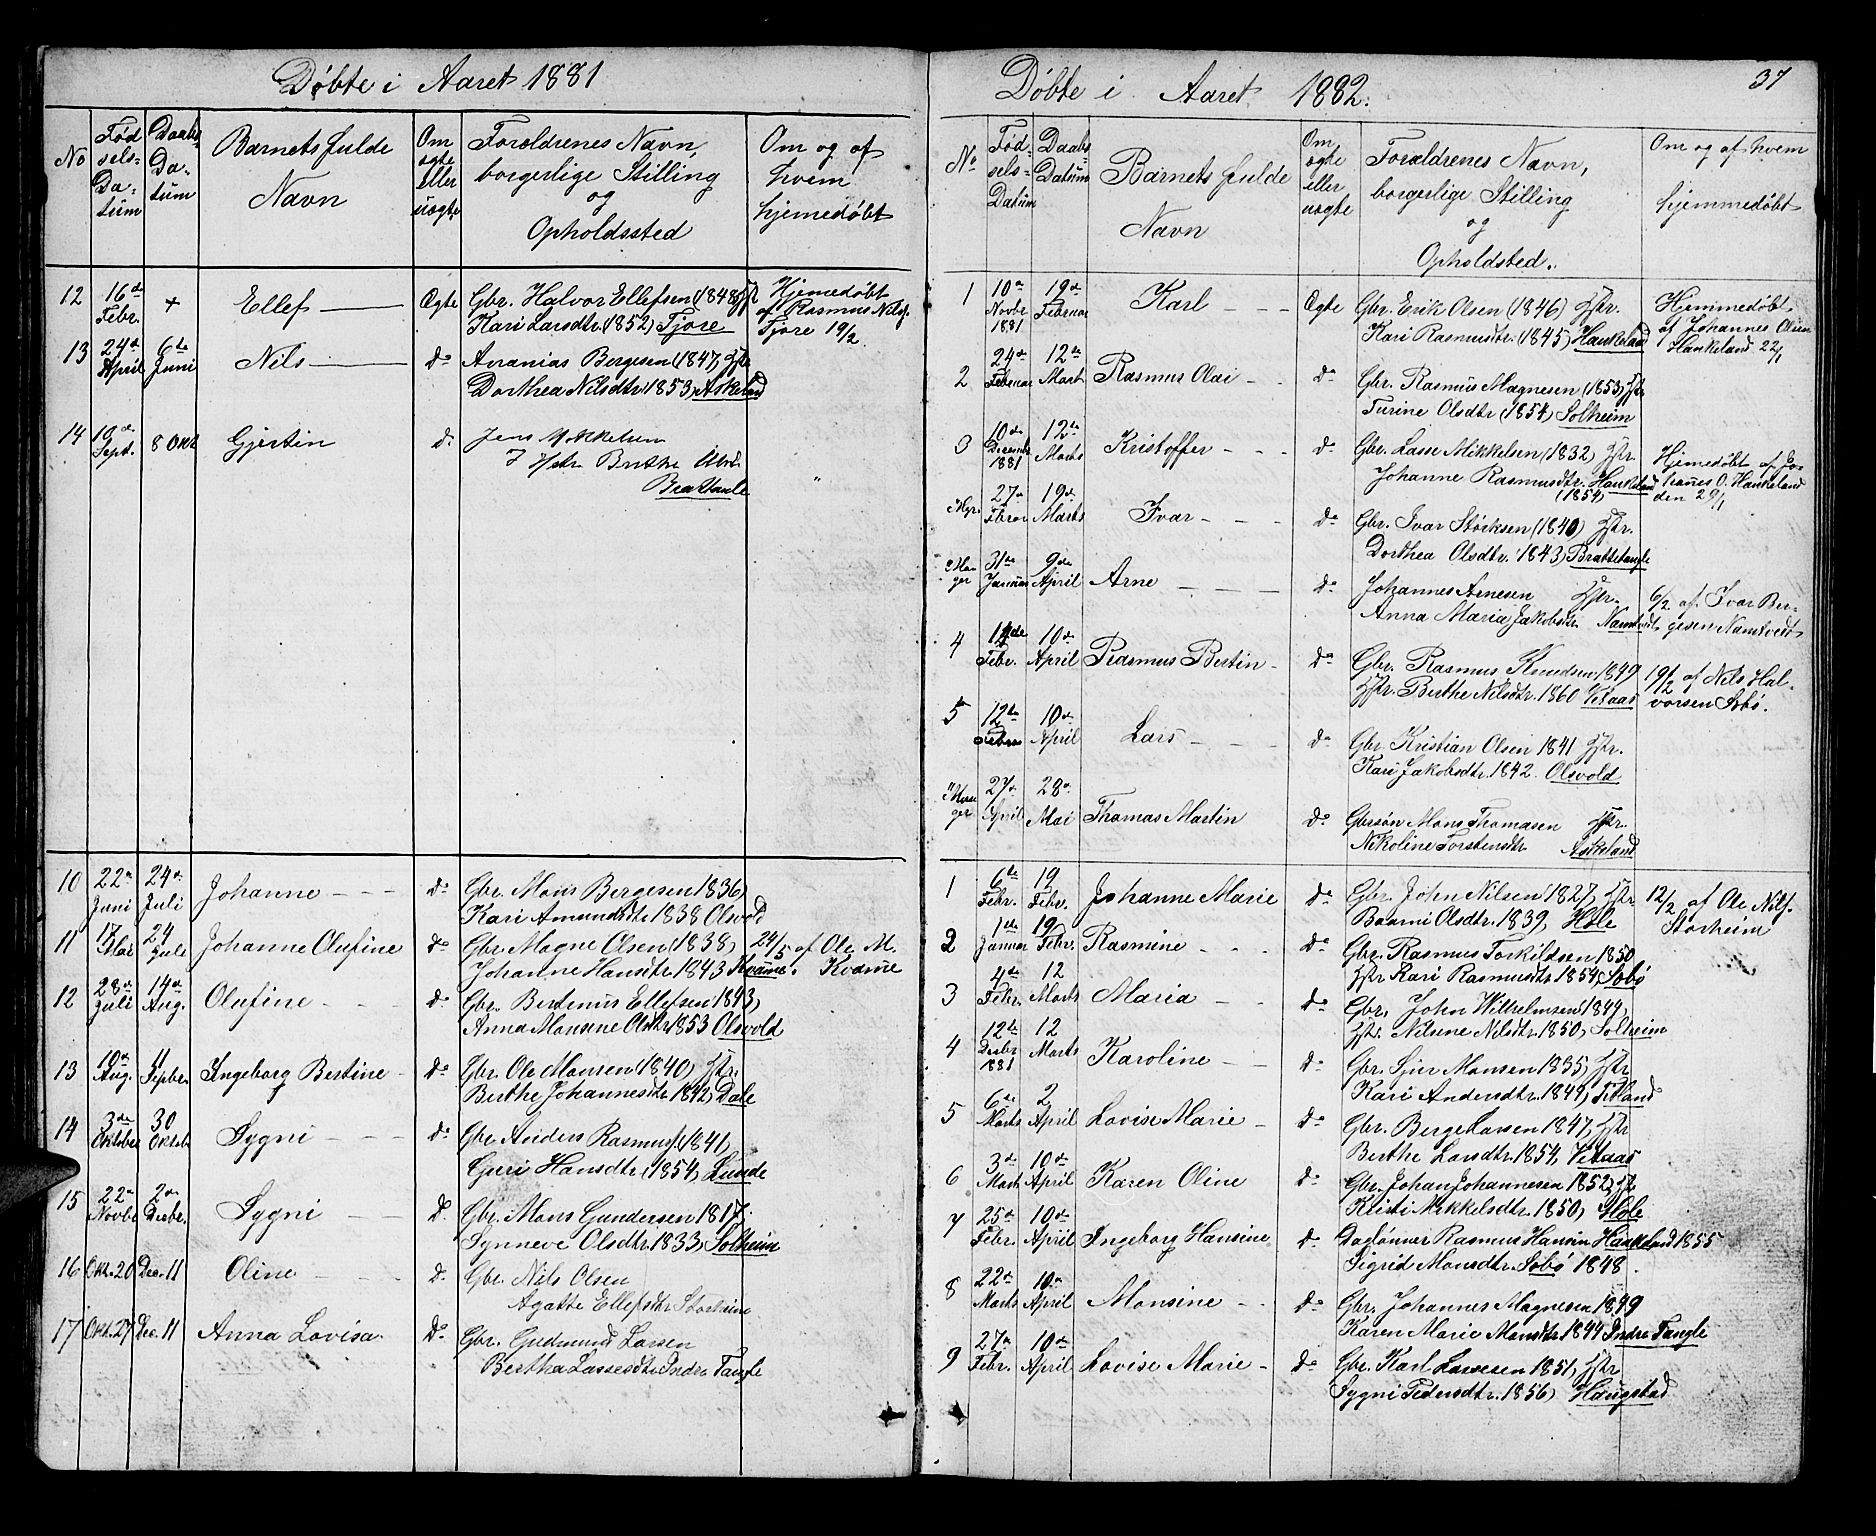 Døbte i Aaret 1881
No
Fødsels-Datum
Daabs-Datum
Barnets fulde Navn
Om ægte eller uægte
Forældrenes Navn, borgerlige Stilling og Opholdssted
Om og af hvem hjemedøbt
12 16de Febr. + Ellef Ægte Gbr. Halvor Ellefsen (1848) Hjemedøbt
Kari Larsdtr. (1852) Fjore af Rasmus Nilss.
Fjore 19/2
13 24de April 6te Juni Nils do Ananias Bergesen (1847) Hstr
Dorthea Nilsdtr. 1853) Askeland
14 Sept. 8 Okt Gjertin d. Jens Mikkelsen
Hstr. Brithe
10 22de Juni 24de Juli Johanne do Gbr. Mons Bergesen 1836)
Kari Amundsdtr 1838 Olsvold
11 17 Mai 24 Juli Johanne Olufine do Gbr. Magne Olsen (1838) 24/5 af Ole M.
Johanne Hansdtr. 1843 Kvamme. Kvamme
12 28de Juli 14de Aug. Olufine do Gbr. Bertinus Ellefsen 1843)
Anna Monsine Olsdtr 1853 Olsvold
13 10de Aug. 4 Septbr. Ingeborg Bertine do Gbr. Ole Monsen (1840) Hstr.
Berthe Johannesdtr. 1842) Dale
14 3de Oktober 30 Oktob Sygni do Gbr Anders Rasmuss. (1841)
Guri Hansdtr. (1854) Lunde
15 22de Novbr 2de Decbr. Sygni d. Gbr. Mons Gundersen 1817)
Synneve Olsdtr. 1833) Solheim
16 Okt. 20 Dec. 11 Oline d. Gbr. Nils Olsen
Agatte Ellefsdtr Storheim
17 Okt. 27 Dec. 11 Anna Lovisa do Gbr. Gudmund Larsen
Bertha Lassesdtr Indre Tangle
Døbte i Aaret 1882.
37
No
Fødsels-Datum
Daabs-Datum
Barnets fulde Navn
Om ægte eller uægte
Forældrenes Navn, borgerlige Stilling og Opholdsted.
Om og af hvem hjemmedøbt
1 10de Novbr 1881 19de Februar Karl Ægte Gbr. Erik Olsen (1846) Hstr. Hjemmedøbt
Kari Rasmusdtr. (1845) Haukeland af Johannes Olsen
Haukeland 22/1
2 24de Februar 12te Marts Rasmus Olai do Gbr. Rasmus Magnesen (1853) Hstr
Turine Olsdtr (1854) Solheim
3 10de Decembr 1881 12te Marts Kristoffer do Gbr. Lasse Mikkelsen (1832) Hstr. Hjemedøbt af Jo-
Johanne Rasmusdtr. Haukeland hanes O. Haukeland
(1854) den 29/1
27de Febrar 19de Marts Ivar do Gbr. Ivar Størksen (1840) Hstr.
Dorthea Olsdtr. 1843) Brattetangle
Manger 31te Januar 9de April Arne do Johannes Arnesen Hstr. 6/2 af Ivar Ber-
Anna Maria Jakobsdtr. Namtvedt gesen Namtvedt
4 Febr. 10de April Rasmus Bertin do Gbr. Rasmus Knudsen 1849 19/2 af Nils Hal-
Hstr. Berthe Nilsdtr. 1860 Vetaas vorsen Sebø.
5 12te Febr 10de April Lars do Gbr. Kristian Olsen 1841 Hstr.
Kari Jakobsdtr. 1842. Olsvold
Manger 27de April 28de Mai Thomas Martin do Gbrsøn Mons Thomasen Hstr.
Nikoline Torstensdtr Askeland
1 6te Febr. 19 Febr. Johanne Marie do Gbr. John Nilsen 1827) Hstr 12/2 af Ole Nilss.
Baarni Olsdtr. 1839) Hole Storheim
2 1ste Januar 19 Febr. Rasmine do Gbr. Rasmus Torkildsen 1850
Hstr Kari Rasmusdtr 1854) Sebø
3 4de Febr. 12 Marts Maria do Gbr. John Wilhelmsen 1849
Hstr. Nilsine Nilsdtr. 1850) Solheim
4 12te Decbr 1881 12 Marts Karoline do Gbr. Sjur Monsen 1835) Hstr
Kari Andersdtr. 1849) Fetland
5 6te Marts 2 April Lovise Marie do Gbr. Berge Larsen 1847) Hstr
Berthe Larsdtr. 1854) Vetaas
6 3de Marts 10de April Karen Oline do Gbr. Johan Johannesen 1852)
Kristi Mikkelsdtr. 1850) Hole
7 25de Febr. 10de April Ingeborg Hansine do Gaardmer Rasmus Hansen Haukeland 1855
Sigrid Monsdtr. Sebø 1848.
8 22de Marts 10de April Monsine do Gbr. Johannes Magnesen 1849
Karen Marie Monsdtr. 1844 Indre Tangle
9 27de Febr. 10de April Lovise Marie do Gbr. Karl Lassesen 1851) Hstr
Sygni Pedersdtr. 1856) Haugstad